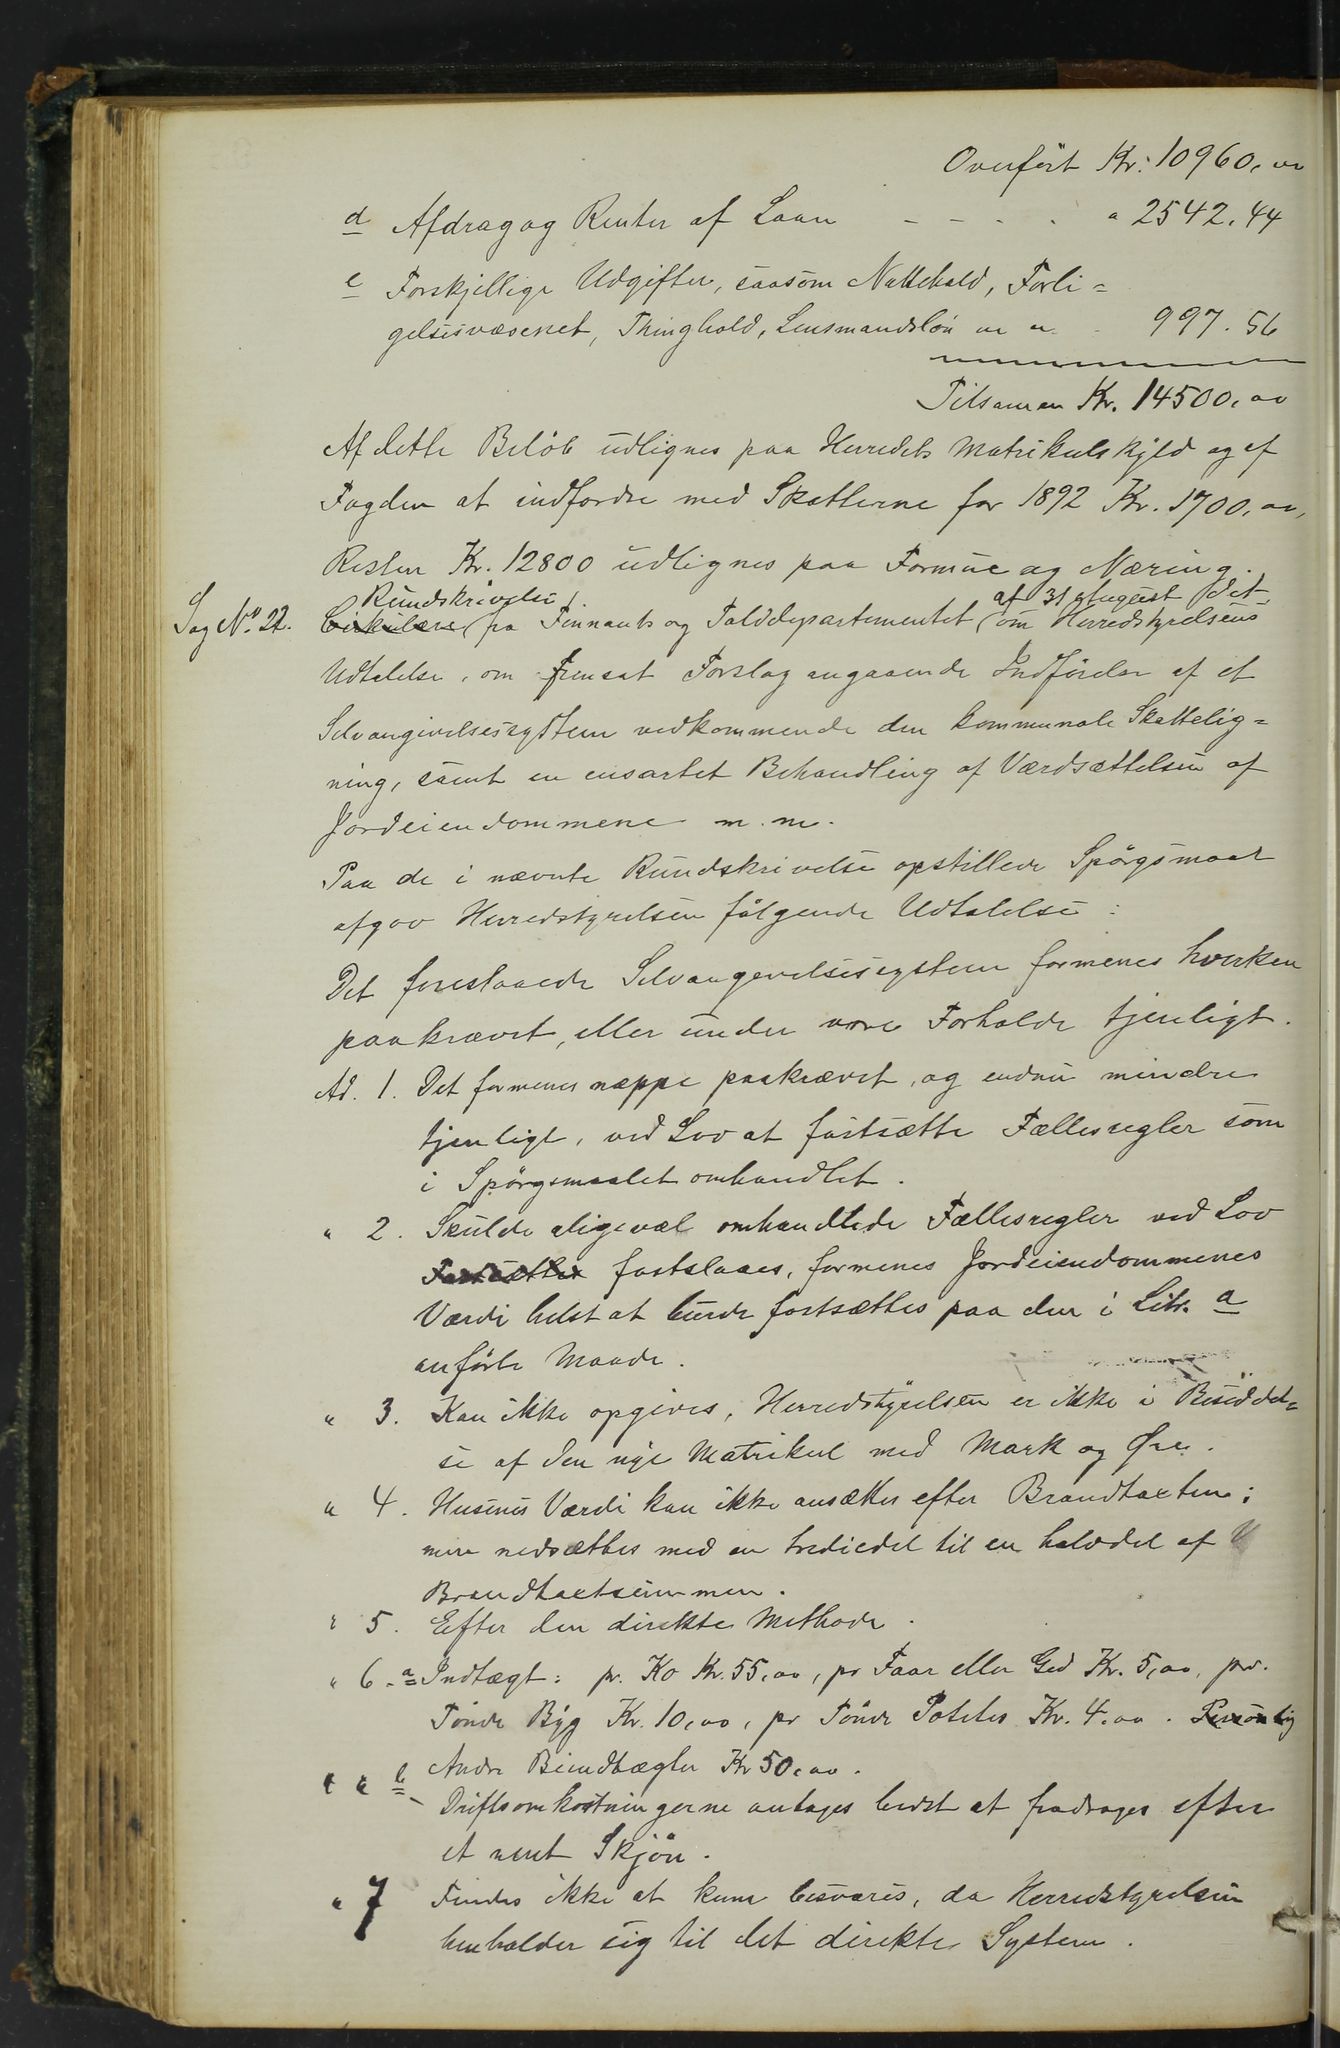 Overført Kr: 10960,00
d Afdrag og Renter af Laan - - - - " 2542.44
e Forskjellige Udgifter, saasom Nattehold, Forli=
gelsesvæsenet, Thinghold, Lensmandsløn m m - 997.56
Tilsamen Kr. 14500,00
Af dette Beløb udlignes paa Herredets Matrikulskyld og af
Fogden at indfordre med Skatterne for 1892 Kr. 1700,00,
Resten Kr. 12800 udlignes paa Formue og Næring.
Rundskrivelse af 31 August d. A.
Sag No. 22. Cirkulære fra Finnants og Tolddepartementet om Herredstyrelsens
Udtalelse, om fremsat Forslag angaaende Indførelse af et
Selvangivelsessystem vedkommende den kommunale Skattelig=
ning, samt en ensartet Behandling af Værdsættelsen af
Jordeiendommene m.m.
Paa de i nævnte Rundskrivelse opstillede Spørgsmaal
afgav Herredstyrelsen følgende Udtalelse:
Det foreslaaede Selvangevelsessystem formenes hverken
paakrævet, eller under vore Forholde tjenligt.
Ad. 1. Det formenes neppe paakrævet, og endnu mindre
tjenligt, ved Lov at fastsætte Fællesregler som
i Spørgsmaalet omhandlet.
" 2. Skulde aligevæl omhandlede Fællesregler ved Lov
Fastsættes fastslaaes, formenes Jordeiendommenes
Værdi helst at burde fastsættes paa den i Litr. a
anførte Maade.
" 3. Kan ikke opgives, Herredstyrelsen er ikke i Besiddel=
se af den nye Matrikul med Mark og Øre.
" 4. Husenes Værdi kan ikke ansættes efter Brandtaxten;
men nedsættes med en trediedel til en halvdel af
Brandtaxtsummen.
" 5. Efter den direkte Methode.
" 6. a Indtægt: pr. Ko Kr. 55,00, pr Faar eller Ged Kr. 5,00, pr.
Tønde Byg Kr. 10,00, pr Tønde Potetes Kr. 4.00. Personlig
" " b Andre Biindtægter Kr 50,00.
Driftsomkostningerne antages bedst at fradrages efter
et nent Skjøn.
" 7 Findes ikke at kune besvares, da Herredstyrelsen
henholder sig til det direkte System.